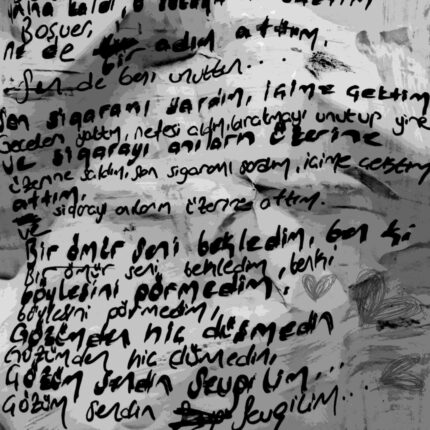 kaldı, o
Boşver,
ne de bir adım attım.
Sen de beni unuttun...
Son sigaramı sardım, içime çektim
Geceleri yattım, nefesi aldım, yaratmayı unutup yine
ve sigarayı anıların üzerine
üzerine saldım, son sigaramı sardım, içime çektim
attım.
ve sigarayı anıların üzerine attım.
Bir ömür seni bekledim, ben ki
Bir ömür seni bekledim, benki
böylesini görmedim.
böylesini görmedim,
Gözümden hiç düşmedin
Gözümden hiç düşmedin,
Gözüm sendin sevgilim...
Gözüm sendin sevgilim...